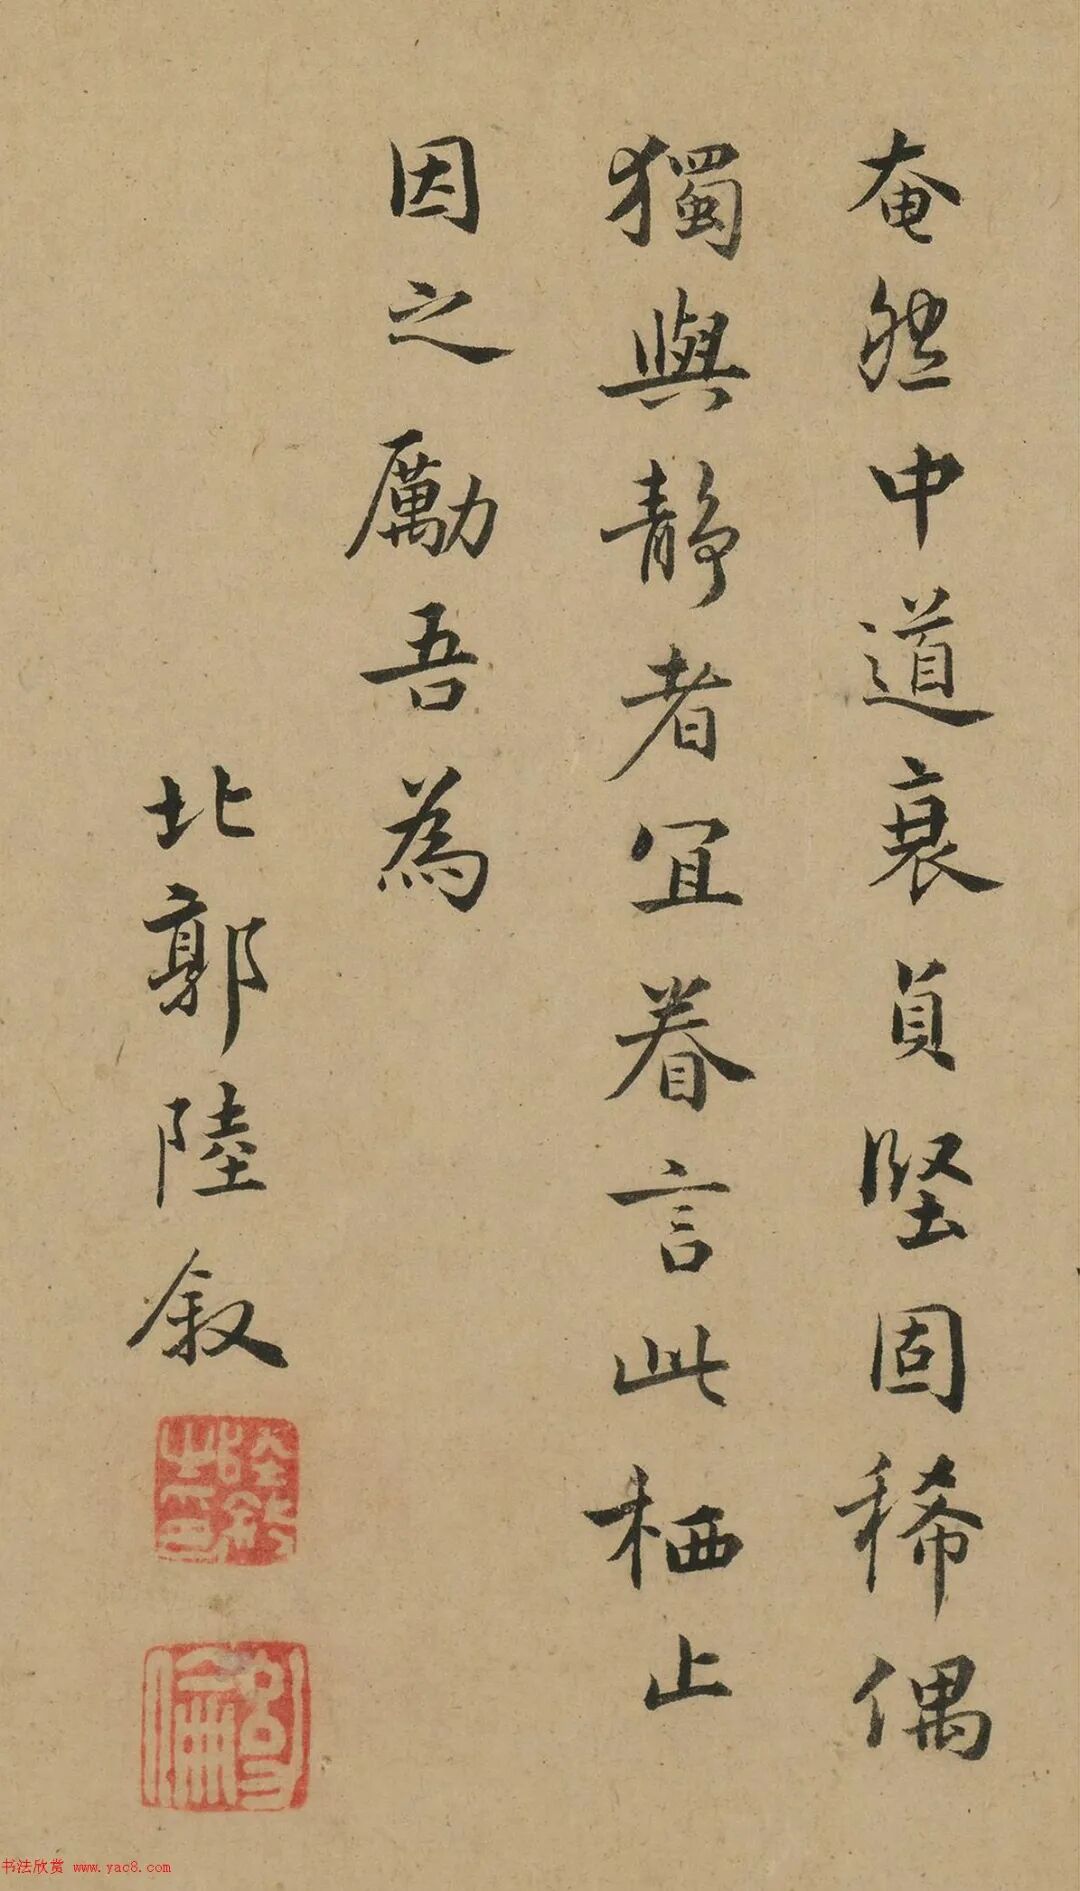 奄然中道衰貞堅固稀偶
獨與靜者宜眷言此栖止
因之勵吾為
北郭陸敘
书法欣赏 www.yac8.com